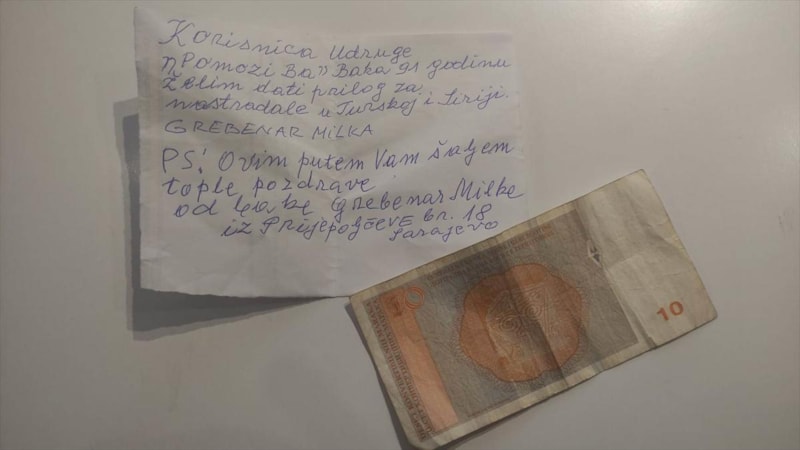 Korisnica Udruge
"Pomozi Ba" Baka 91 godinu
Želim dati prilog za
nastradale u Turskoj i Siriji.
GREBENAR MILKA
PS! Ovim putem Vam šaljem
tople pozdrave
od bake Grebenar Milke
iz Prijepoljčeve br. 18
Sarajevo
10